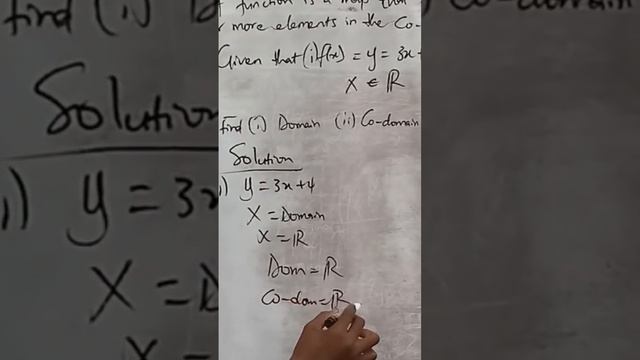 function is a map that
more elements in the Co-
Given that (i) f(x) = y = 3x +
X ∈ ℝ
Find (i) Domain (ii) Co-domain
Solution
y = 3x + 4
X = Domain
X = ℝ
Dom = ℝ
Co-dom = ℝ